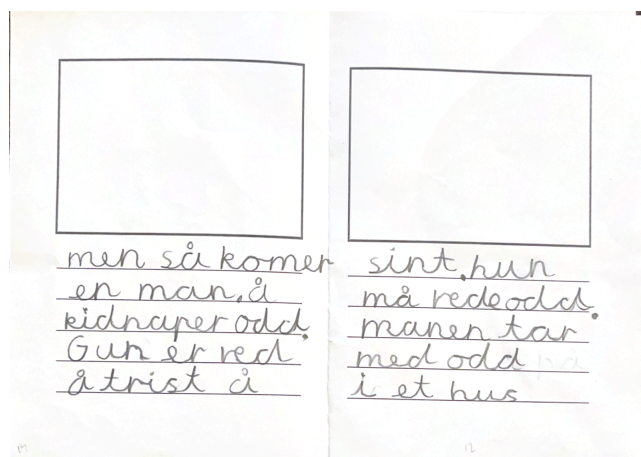 men så komer
en man. å
kidnaper odd.
Gun er red
å trist å
sint. hun
må rede odd.
manen tar
med odd
i et hus
12